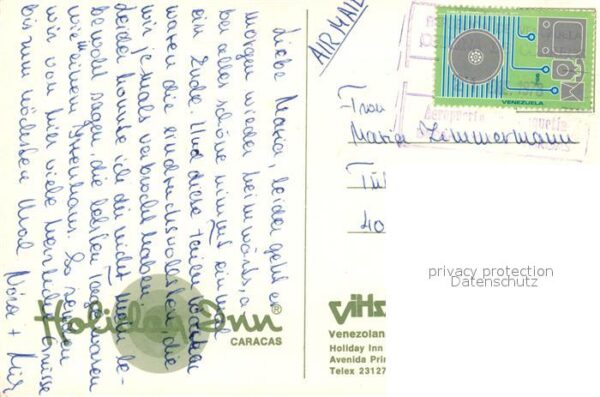 Liebe Maria, leider geht es
morgen wieder heimwärts, a
ber alles schöne nimmt einmal
ein Ende. Und diese Ferien
waren die eindrucksvollsten, die
wir jemals verbracht haben
leider konnte ich dir nicht mehr
sagen, die letzten Tage waren
wie einem So senden
wir von hier viele herzliche Grüsse
bis zum nächsten Mal
AIR MAIL
VENEZUELA
Frau
Maria Zimmermann
40
privacy protection
Datenschutz
Holiday Inn®
CARACAS
Venezolan
Holiday Inn
Avenida Prin
Telex 23127